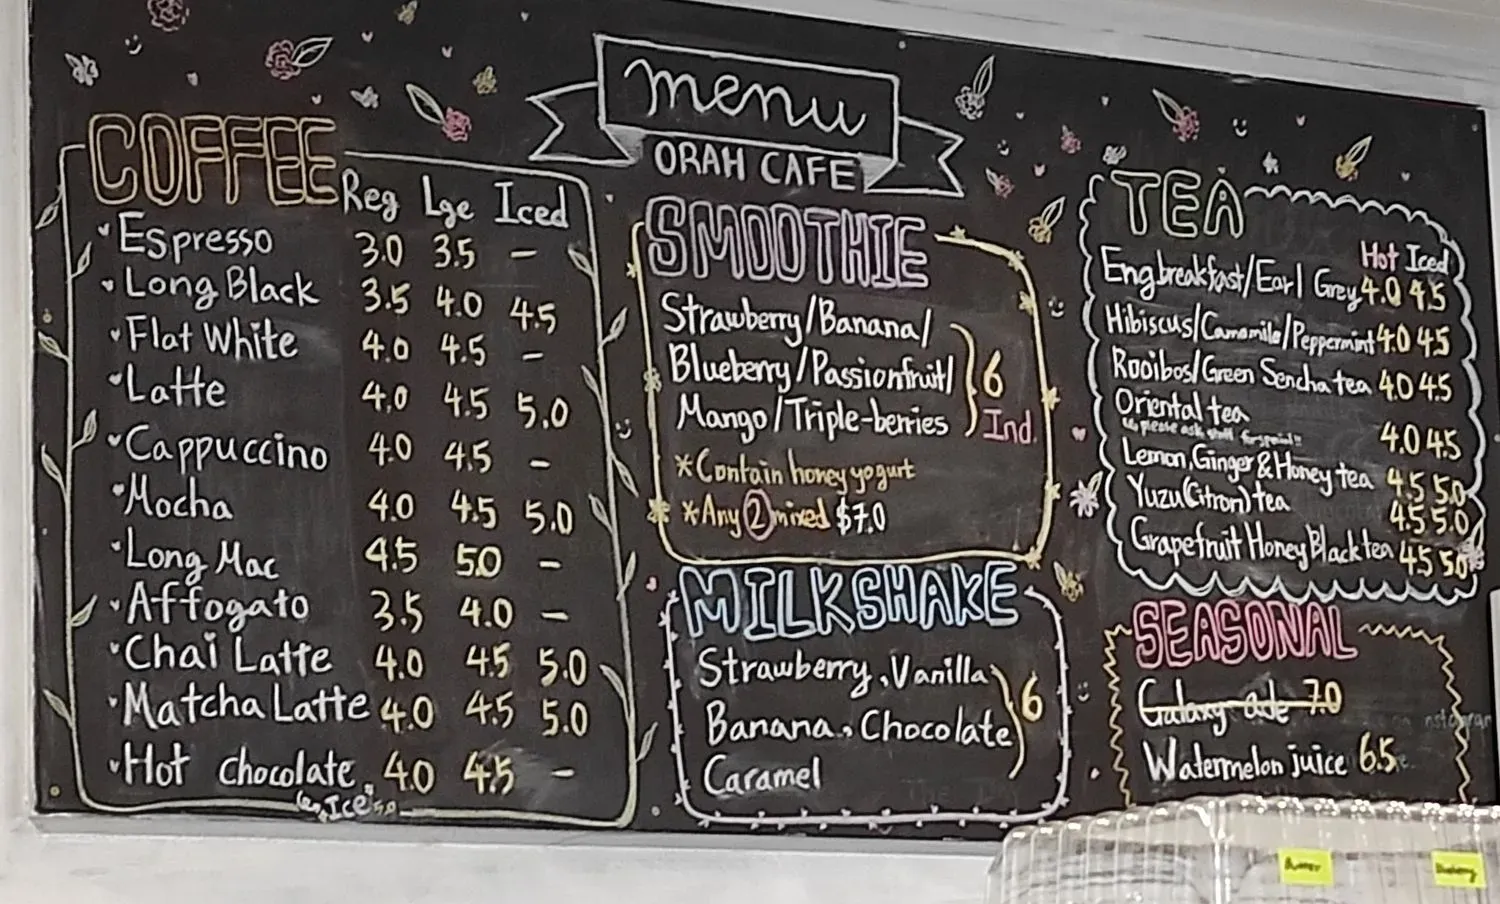 menu
ORAH CAFE
COFFEE
Reg Lge Iced
Espresso 3.0 3.5 -
Long Black 3.5 4.0 4.5
Flat White 4.0 4.5 -
Latte 4.0 4.5 5.0
Cappuccino 4.0 4.5 -
Mocha 4.0 4.5 5.0
Long Mac 4.5 5.0 -
Affogato 3.5 4.0 -
Chai Latte 4.0 4.5 5.0
Matcha Latte 4.0 4.5 5.0
Hot chocolate 4.0 4.5 -
"Ice" 5.0
SMOOTHIE
Strawberry/Banana/
Blueberry/Passionfruit/ 6
Mango/Triple-berries Ind.
*Contain honey yogurt
*Any 2 mixed $7.0
MILKSHAKE
Strawberry, Vanilla
Banana, Chocolate 6
Caramel
TEA
Hot Iced
Eng.breakfast/Earl Grey 4.0 4.5
Hibiscus/Camomile/Peppermint 4.0 4.5
Rooibos/Green Sencha tea 4.0 4.5
Oriental tea 4.0 4.5
please ask staff for special!!
Lemon, Ginger & Honey tea 4.5 5.0
Yuzu(Citron) tea 4.5 5.0
Grapefruit Honey Black tea 4.5 5.0
SEASONAL
Galaxy-ade 7.0
Watermelon juice 6.5